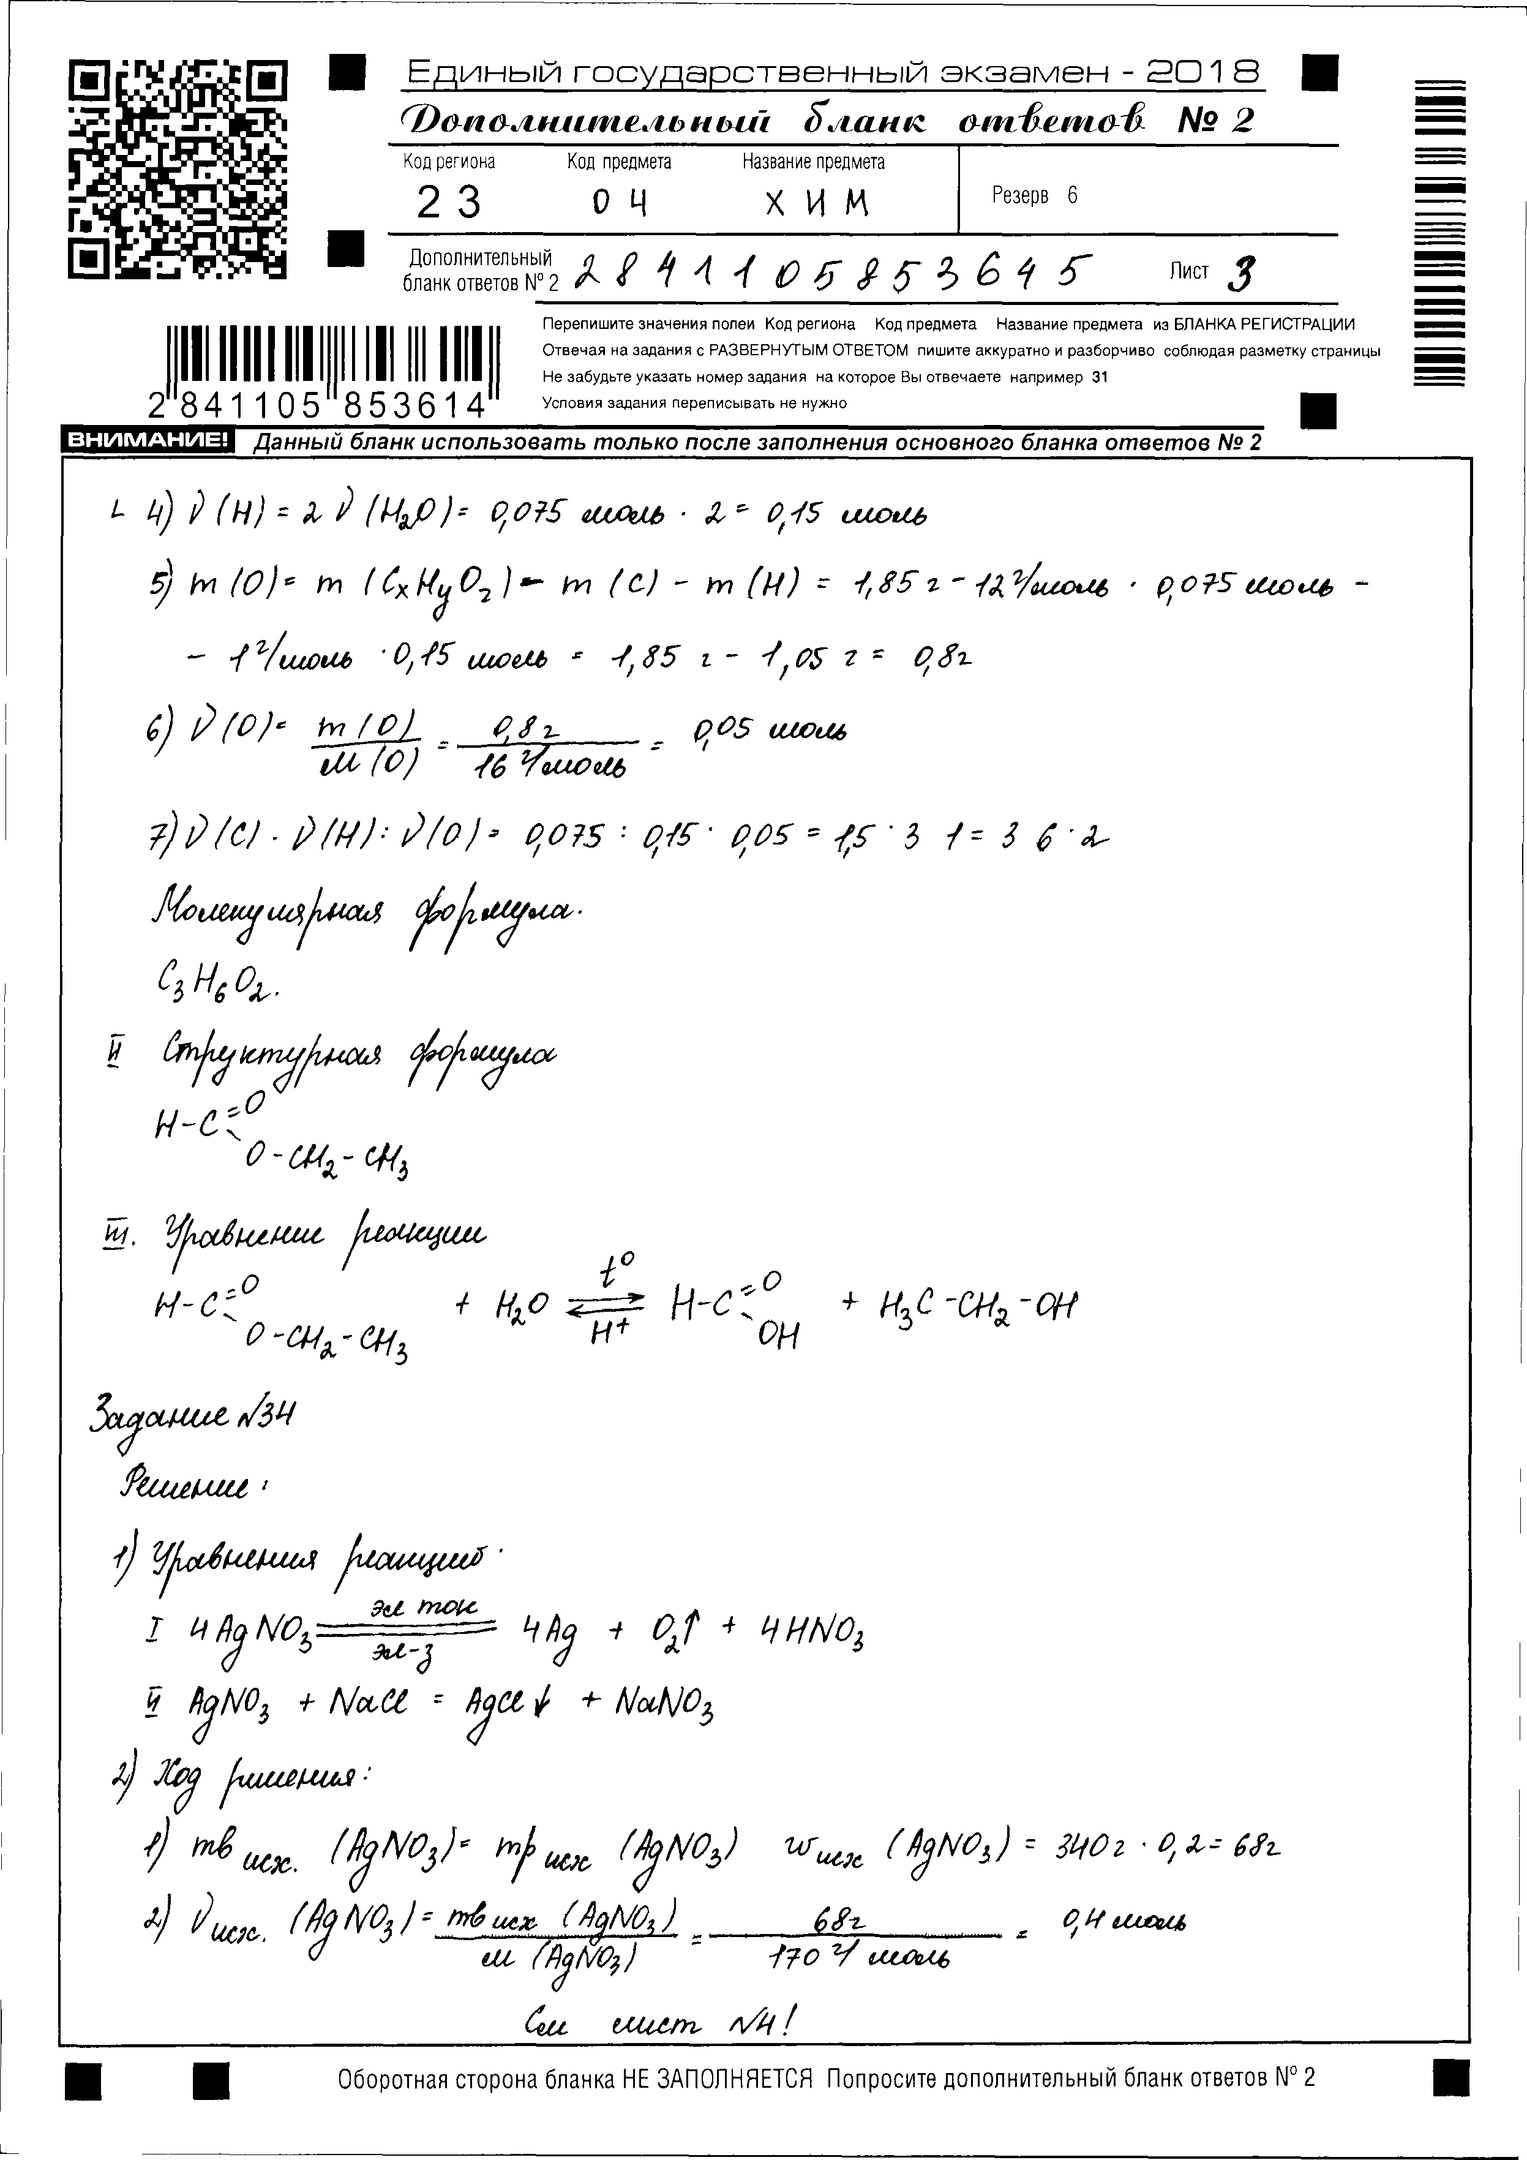 Единый государственный экзамен - 2018
Дополнительный бланк ответов № 2
Код региона Код предмета Название предмета
23 04 ХИМ Резерв 6
Дополнительный
бланк ответов № 2 2841105853645 Лист 3
Перепишите значения полеи Код региона Код предмета Название предмета из БЛАНКА РЕГИСТРАЦИИ
Отвечая на задания с РАЗВЕРНУТЫМ ОТВЕТОМ пишите аккуратно и разборчиво соблюдая разметку страницы
Не забудьте указать номер задания на которое Вы отвечаете например 31
Условия задания переписывать не нужно
2 841105 853614
ВНИМАНИЕ! Данный бланк использовать только после заполнения основного бланка ответов № 2
4) ν(H) = 2 ν(H₂O) = 0,075 моль · 2 = 0,15 моль
5) m(O) = m(CxHyO₂) - m(C) - m(H) = 1,85 г - 12 г/моль · 0,075 моль -
- 1 г/моль · 0,15 моль = 1,85 г - 1,05 г = 0,8г
6) ν(O) = m(O) / M(O) = 0,8г / 16 г/моль = 0,05 моль
7) ν(C) . ν(H) : ν(O) = 0,075 : 0,15 · 0,05 = 1,5 · 3 1 = 3 6 · 2
Молекулярная формула.
C₃H₆O₂.
II Структурная формула
H-C=O
O-CH₂-CH₃
III. Уравнение реакции
H-C=O + H₂O ⇌ t° H+ H-C=O + H₃C-CH₂-OH
O-CH₂-CH₃ OH
Задание №34
Решение:
1) Уравнения реакций.
I 4AgNO₃ = эл ток эл-з 4Ag + O₂↑ + 4HNO₃
II AgNO₃ + NaCl = AgCl↓ + NaNO₃
2) Ход решения:
1) mв исх. (AgNO₃) = mр исх (AgNO₃) w исх (AgNO₃) = 340г · 0,2 = 68г
2) ν исх. (AgNO₃) = mв исх (AgNO₃) / M (AgNO₃) = 68г / 170 г/моль = 0,4 моль
См лист №4!
Оборотная сторона бланка НЕ ЗАПОЛНЯЕТСЯ Попросите дополнительный бланк ответов № 2